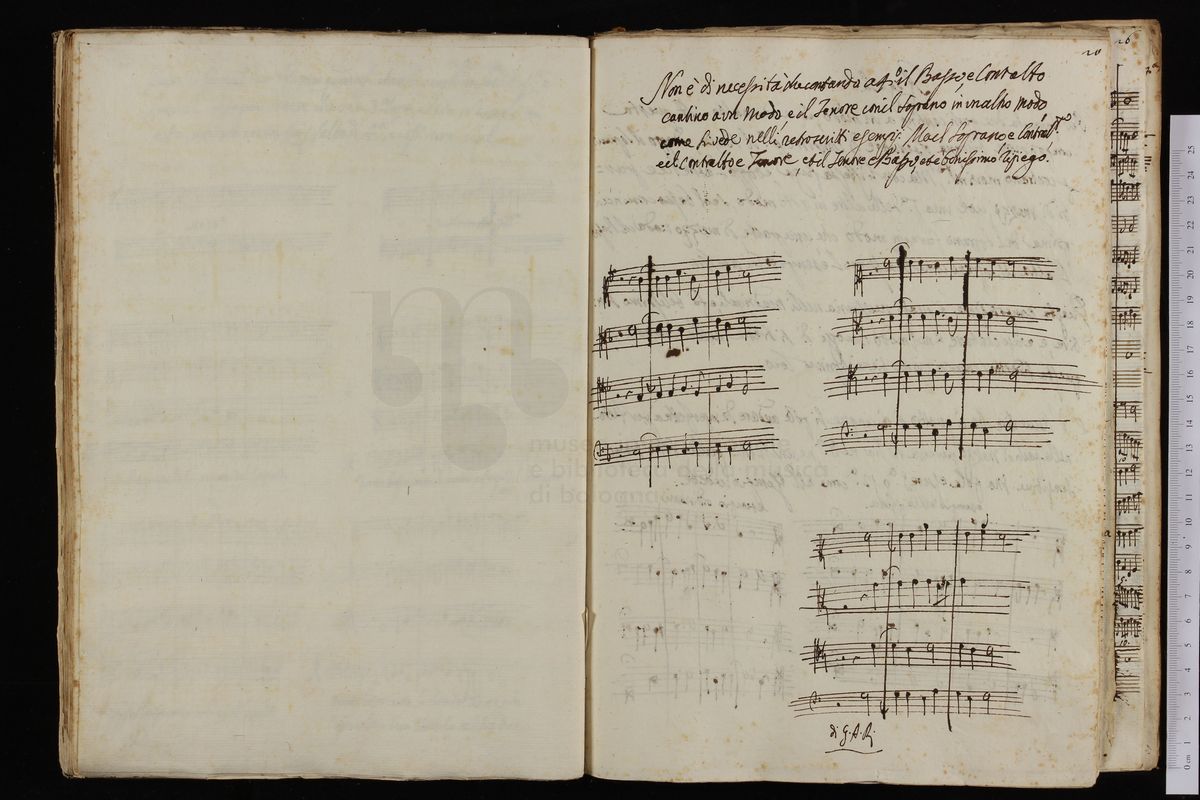 20
26
Non è di necessità che cantando a 4.º il Basso, e Contralto
cantino a un Modo, e il Tenore con il Soprano in un altro modo
come si vede nelli retroscritti esempi. Ma il Soprano e Contralto
e il Contralto e Tenore, et il Tenore e Basso, et è bonissimo ripiego.
museo
e biblioteca della musica
di bologna
di G. A. R.
0 cm 1 2 3 4 5 6 7 8 9 10 11 12 13 14 15 16 17 18 19 20 21 22 23 24 25